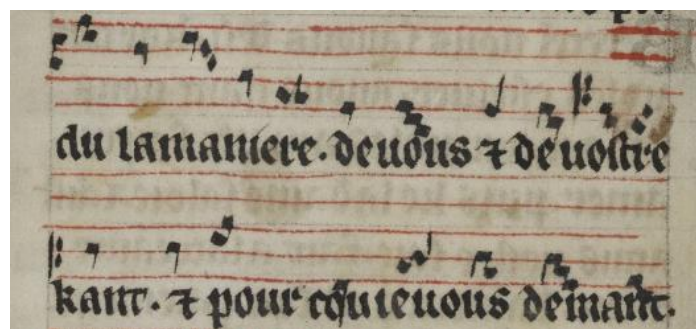 du lamaniere. deuous ⁊ de uostre
kant. ⁊ pour ce q̃ ieuous demant.